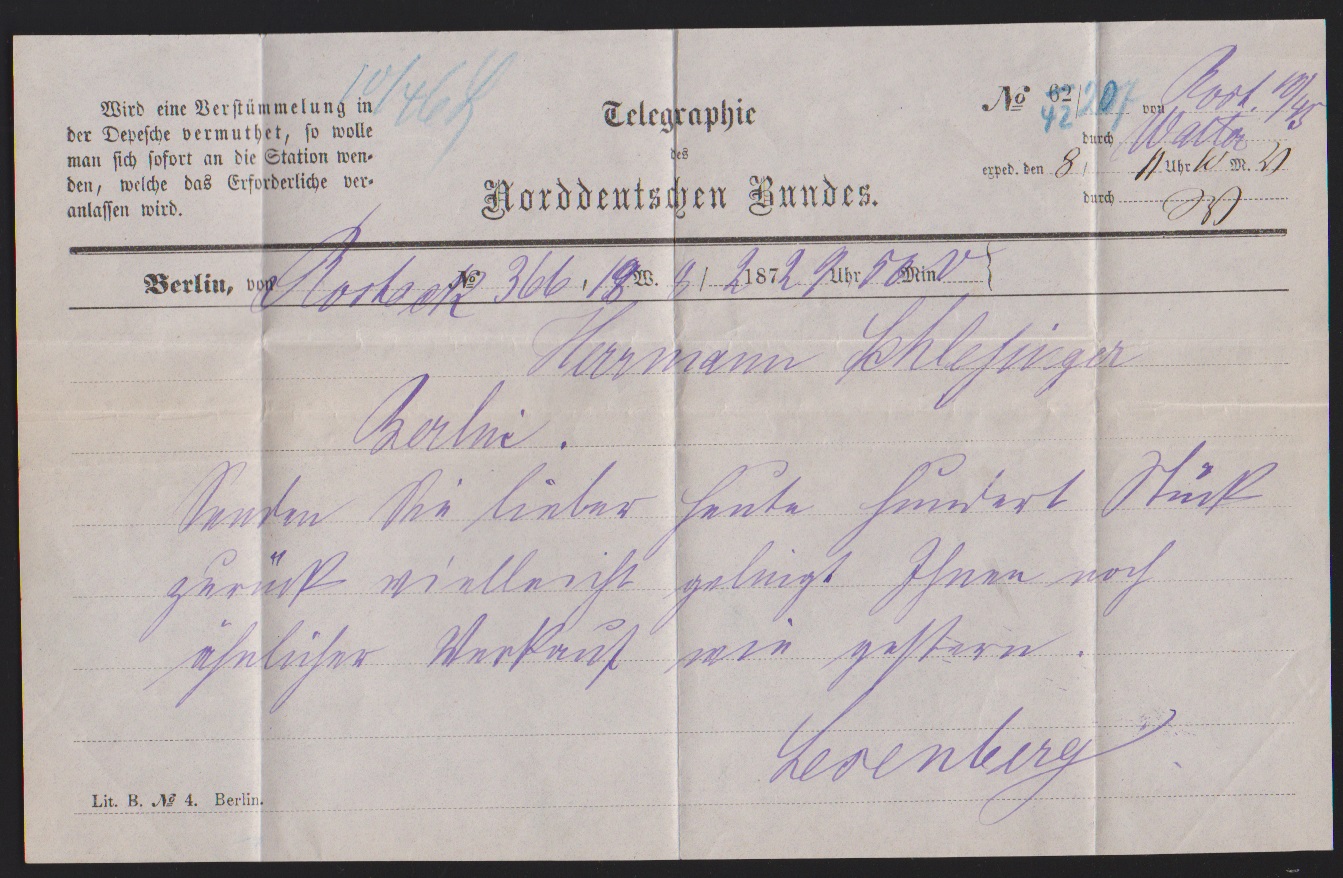 Wird eine Verstümmelung in
der Depesche vermuthet, so wolle
man sich sofort an die Station wen-
den, welche das Erforderliche ver-
anlassen wird.
10/46
Telegraphie
des
Norddeutschen Bundes.
No 62/207 von Rost. 10/45
42
durch
exped. den 8, 11 Uhr M.
durch
Berlin, von Rostock No 366, 18 W. 8/2 1872 9 Uhr 50 Min. V
Herrmann Schlesinger
Berlin.
Senden Sie lieber heute hundert Stück
zurück vielleicht gelingt Ihnen noch
ähnlicher Verkauf wie gestern.
Lesenberg
Lit. B. No 4. Berlin.